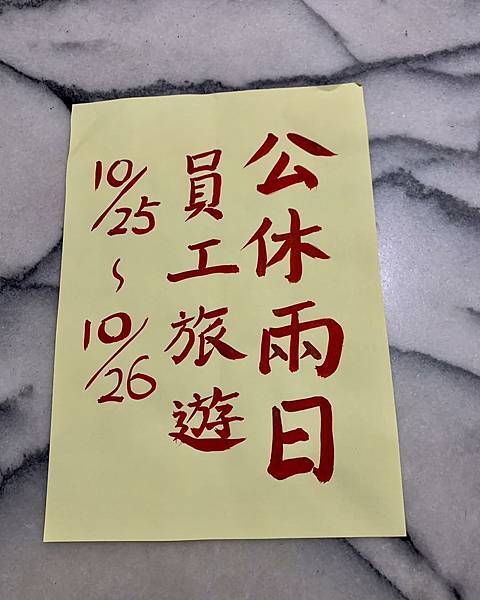 公休兩日
員工旅遊
10/25~10/26